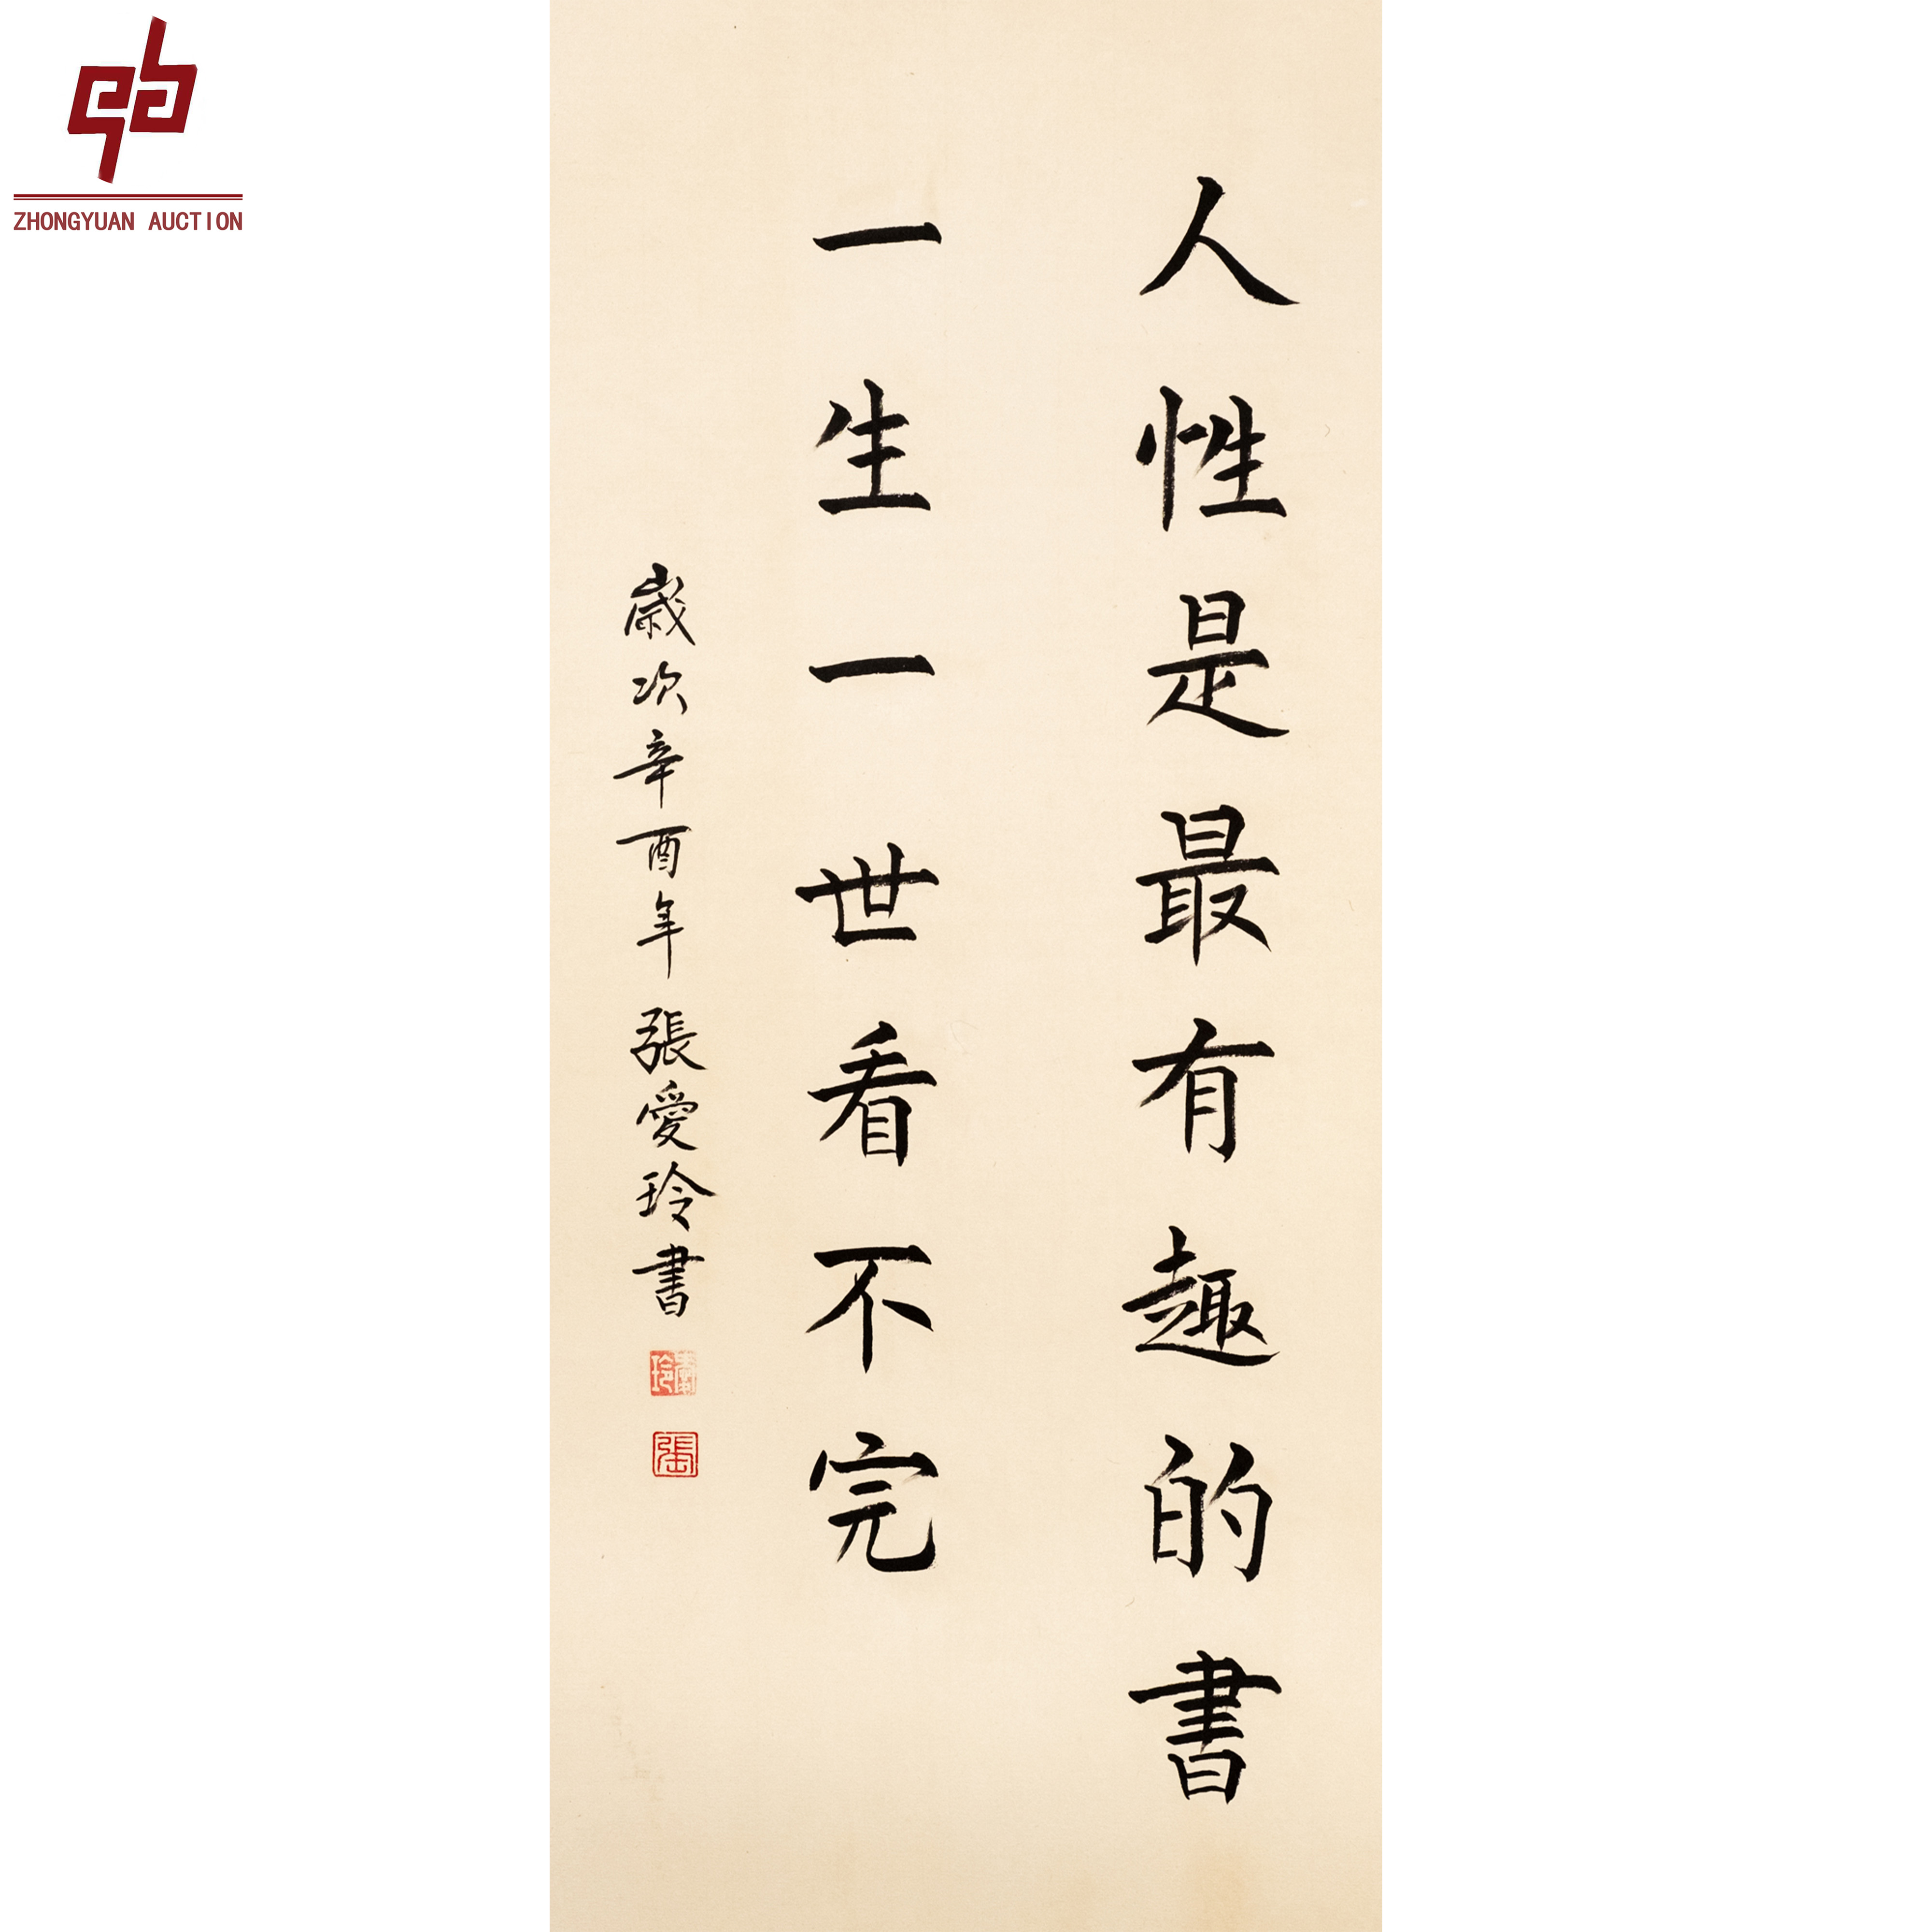 ZHONGYUAN AUCTION
人性是最有趣的書
一生一世看不完
歲次辛酉年 張愛玲書
愛玲
張